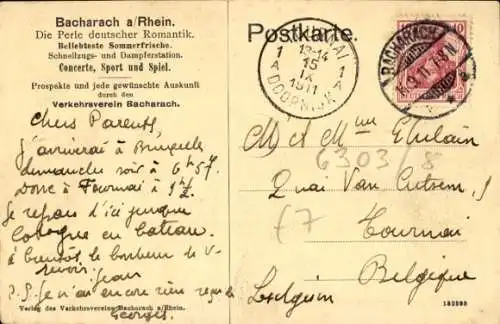 Bacharach a/Rhein.
Die Perle deutscher Romantik.
Beliebteste Sommerfrische.
Schnellzugs- und Dampferstation.
Concerte, Sport und Spiel.
Prospekte und jede gewünschte Auskunft
durch den
Verkehrsverein Bacharach.
Chers Parents,
J'arriverai à Bruxelles
dimanche soir à 6h57
Donc à Tournai à
Je repars d'ici jusque
Cologne en bateau.
à bientôt le bonheur de v.
revoir. Jean
P.S. Je n'ai encore rien reçu de
Georges.
Verlag des Verkehrsvereins Bacharach a/Rhein.
Postkarte.
TOURNAI
1 13-14 1
A 15 A
IX
1911
DOORNIJK
BACHARACH
10
M et Mme Ghislain
6303/8
Quai Van Cutsem, 7
Tournai
Belgique
Belgien
182598